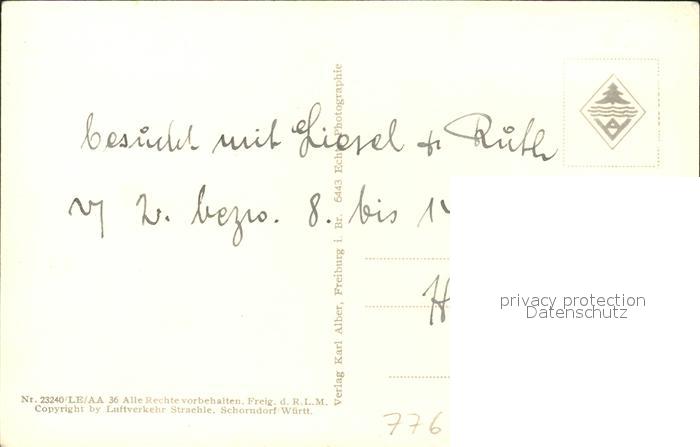 besucht mit Liesel & Ruth
v. bezw. 8. bis
H
Verlag Karl Alber, Freiburg i. Br. 6443 Echte Photographie
privacy protection
Datenschutz
Nr. 23240/LE/AA 36 Alle Rechte vorbehalten. Freig. d. R.L.M.
Copyright by Luftverkehr Straehle, Schorndorf Württ.
776